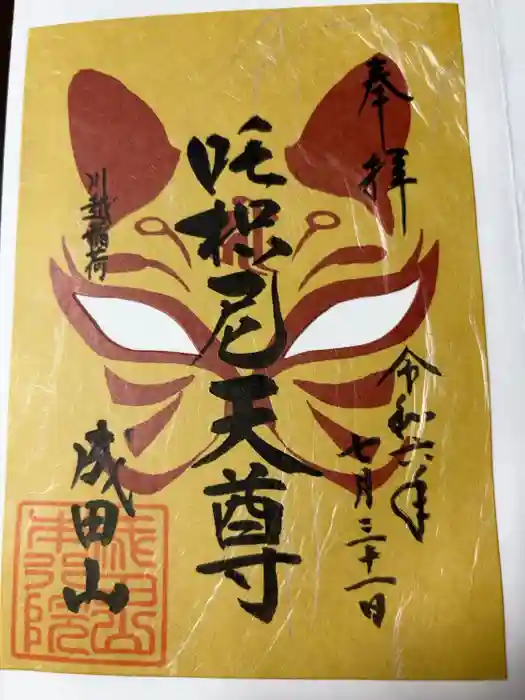 奉拝
令和六年
七月三十一日
吒枳尼天尊
川越稲荷
成田山